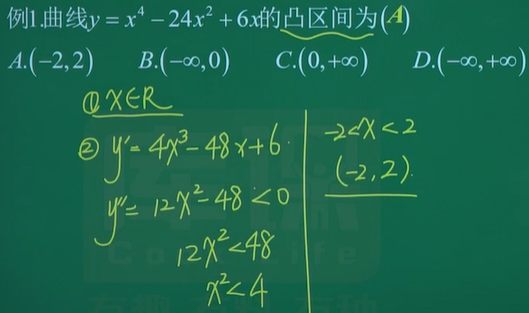 例1.曲线y = x⁴ − 24x² + 6x的凸区间为(A)
A.(−2,2) B.(−∞,0) C.(0,+∞) D.(−∞,+∞)
① x∈R
② y′= 4x³−48x+6.
y″= 12x²−48<0
12x²<48
x²<4
-2<x<2
(-2,2).